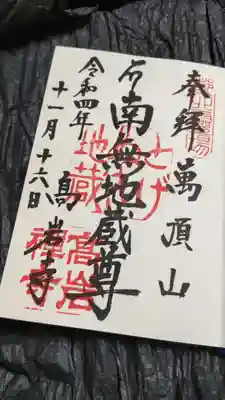 奉拝
萬頂山
南無地蔵尊
高岩寺
令和四年
十一月十六日
とげ
地蔵
高岩
禅寺